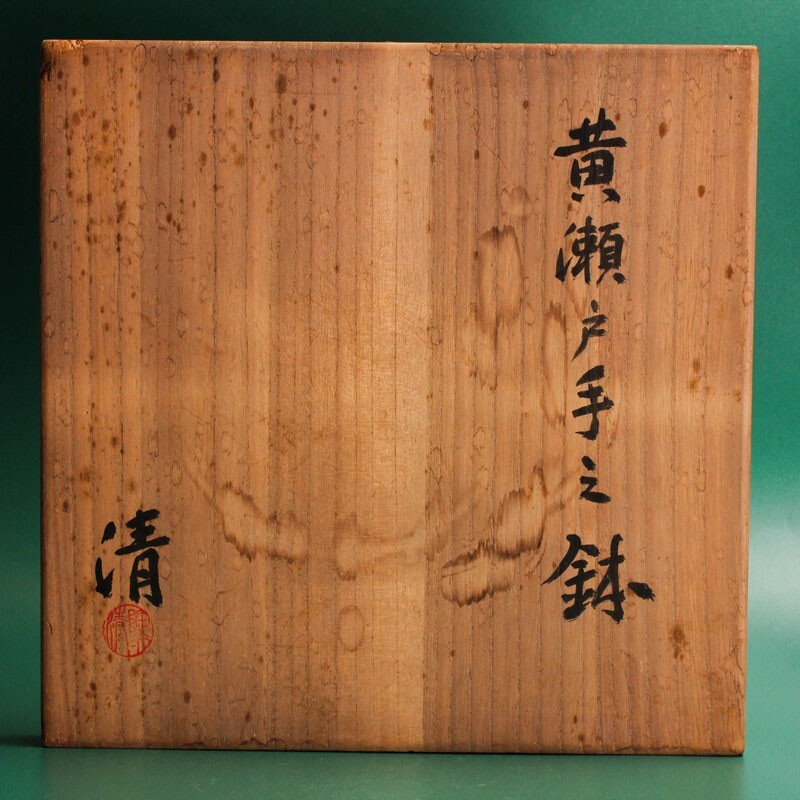 黄瀬戸手之鉢
清